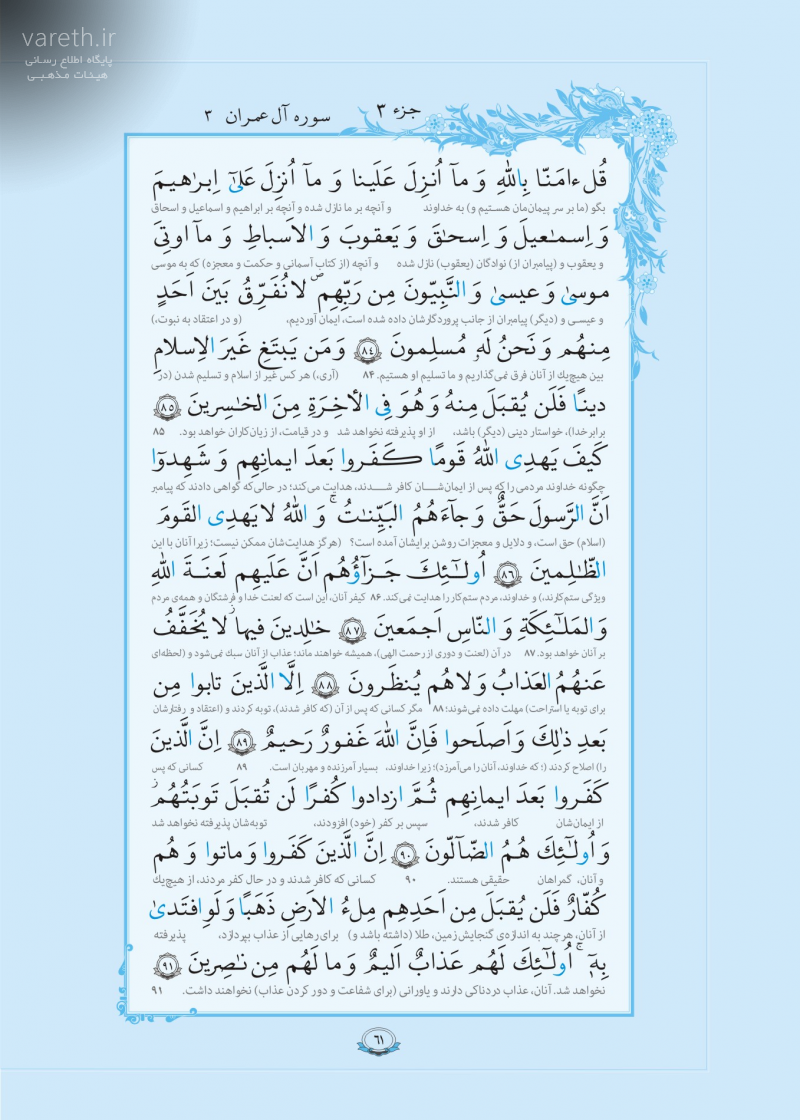 vareth.ir
پایگاه اطلاع رسانی
هیئات مذهبی
جزء ۳
سوره آل عمران ۳
قُل ءامَنّا بِاللهِ وَ مآ اُنزِلَ عَلَینا وَ مآ اُنزِلَ عَلیٰٓ اِبرٰهیمَ
بگو (ما بر سر پیمان‌مان هستیم و) به خداوند و آنچه بر ما نازل شده و آنچه بر ابراهیم و اسماعیل و اسحاق
وَ اِسمٰعیلَ وَ اِسحٰقَ وَ یَعقوبَ وَ الاَسباطِ وَ مآ اوتِیَ
و یعقوب و (پیامبران از) نوادگان (یعقوب) نازل شده و آنچه (از کتاب آسمانی و حکمت و معجزه) که به موسی
موسیٰ وَ عیسیٰ وَ النَّبِیّونَ مِن رَبِّهِم ۖ لا نُفَرِّقُ بَینَ اَحَدٍ
و عیسی و (دیگر) پیامبران از جانب پروردگارشان داده شده است، ایمان آوردیم، (و در اعتقاد به نبوت،)
مِنهُم وَ نَحنُ لَهٗ مُسلِمونَ ﴿۸٤﴾ وَ مَن یَبتَغِ غَیرَ الاِسلامِ
بین هیچ‌یك از آنان فرق نمی‌گذاریم و ما تسلیم او هستیم. ۸۴ (آری،) هر کس غیر از اسلام و تسلیم شدن (در
دینًا فَلَن یُقبَلَ مِنهُ وَ هُوَ فِی الأخِرَةِ مِنَ الخٰسِرینَ ﴿۸۵﴾
برابر خدا)، خواستار دینی (دیگر) باشد، از او پذیرفته نخواهد شد و در قیامت، از زیان‌کاران خواهد بود. ۸۵
کَیفَ یَهدِی اللهُ قَومًا کَفَروا بَعدَ ایمانِهِم وَ شَهِدوٓا
چگونه خداوند مردمی را که پس از ایمان‌شان کافر شدند، هدایت می‌کند؛ در حالی‌که گواهی دادند که پیامبر
اَنَّ الرَّسولَ حَقٌّ وَ جآءَهُمُ البَیِّنٰتُ ۚ وَ اللهُ لا یَهدِی القَومَ
(اسلام) حق است، و دلایل و معجزات روشن برایشان آمده است؟ (هرگز هدایت‌شان ممکن نیست؛ زیرا آنان با این
الظّٰلِمینَ ﴿۸٦﴾ اُولٰٓئِكَ جَزآؤُهُم اَنَّ عَلَیهِم لَعنَةَ اللهِ
ویژگی ستم‌کارند،) و خداوند، مردم ستم‌کار را هدایت نمی‌کند. ۸۶ کیفر آنان، این است که لعنت خدا و فرشتگان و همه‌ی مردم
وَ المَلٰٓئِکَةِ وَ النّاسِ اَجمَعینَ ﴿۸۷﴾ خٰلِدینَ فیها ۖ لا یُخَفَّفُ
بر آنان خواهد بود. ۸۷ در آن (لعنت و دوری از رحمت الهی)، همیشه خواهند ماند؛ عذاب از آنان سبك نمی‌شود و (لحظه‌ای
عَنهُمُ العَذابُ وَ لا هُم یُنظَرونَ ﴿۸۸﴾ اِلَّا الَّذینَ تابوا مِن
برای توبه یا استراحت) مهلت داده نمی‌شوند؛ ۸۸ مگر کسانی که پس از آن (که کافر شدند)، توبه کردند و (اعتقاد و رفتارشان
بَعدِ ذٰلِكَ وَ اَصلَحوا فَاِنَّ اللهَ غَفورٌ رَحیمٌ ﴿۸۹﴾ اِنَّ الَّذینَ
را) اصلاح کردند (؛ که خداوند، آنان را می‌آمرزد)؛ زیرا خداوند، بسیار آمرزنده و مهربان است. ۸۹ کسانی که پس
کَفَروا بَعدَ ایمانِهِم ثُمَّ ازدادوا کُفرًا لَن تُقبَلَ تَوبَتُهُم
از ایمان‌شان کافر شدند، سپس بر کفر (خود) افزودند، توبه‌شان پذیرفته نخواهد شد
وَ اُولٰٓئِكَ هُمُ الضّآلّونَ ﴿۹۰﴾ اِنَّ الَّذینَ کَفَروا وَ ماتوا وَ هُم
و آنان، گمراهان حقیقی هستند. ۹۰ کسانی که کافر شدند و در حال کفر مردند، از هیچ‌یك
کُفّارٌ فَلَن یُقبَلَ مِن اَحَدِهِم مِلءُ الاَرضِ ذَهَبًا وَ لَوِ افتَدیٰ
از آنان، هرچند به اندازه‌ی گنجایش زمین، طلا (داشته باشد و) برای رهایی از عذاب بپردازد، پذیرفته
بِهٖٓ ۗ اُولٰٓئِكَ لَهُم عَذابٌ اَلیمٌ وَ ما لَهُم مِن نٰصِرینَ ﴿۹۱﴾
نخواهد شد. آنان، عذاب دردناکی دارند و یاورانی (برای شفاعت و دور کردن عذاب) نخواهند داشت. ۹۱
٦۱